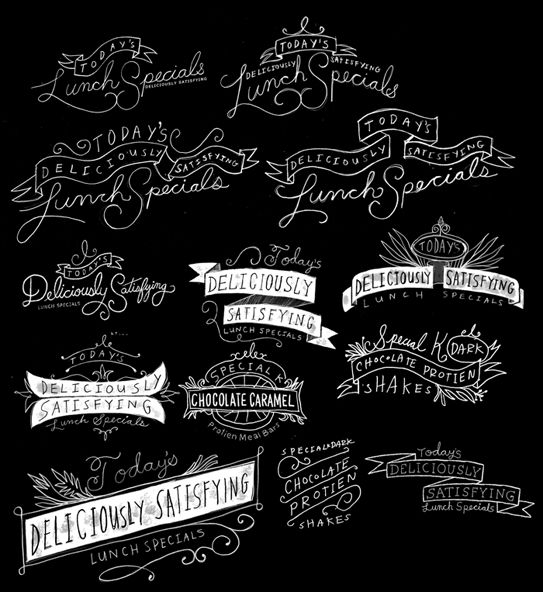 TODAY'S
Lunch Specials
DELICIOUSLY SATISFYING
TODAY'S
DELICIOUSLY SATISFYING
Lunch Specials
TODAY'S
DELICIOUSLY SATISFYING
Lunch Specials
TODAY'S
DELICIOUSLY SATISFYING
Lunch Specials
TODAY'S
Deliciously Satisfying
LUNCH SPECIALS
Today's
DELICIOUSLY
SATISFYING
LUNCH SPECIALS
TODAY'S
DELICIOUSLY SATISFYING
LUNCH SPECIALS
TODAY'S
DELICIOUSLY
SATISFYING
Lunch Specials
SPECIAL K
CHOCOLATE CARAMEL
Protien Meal Bars
Special K
DARK
CHOCOLATE PROTIEN
SHAKES
Today's
DELICIOUSLY SATISFYING
LUNCH SPECIALS
SPECIAL K DARK
CHOCOLATE
PROTIEN
SHAKES
Today's
DELICIOUSLY
SATISFYING
Lunch Specials